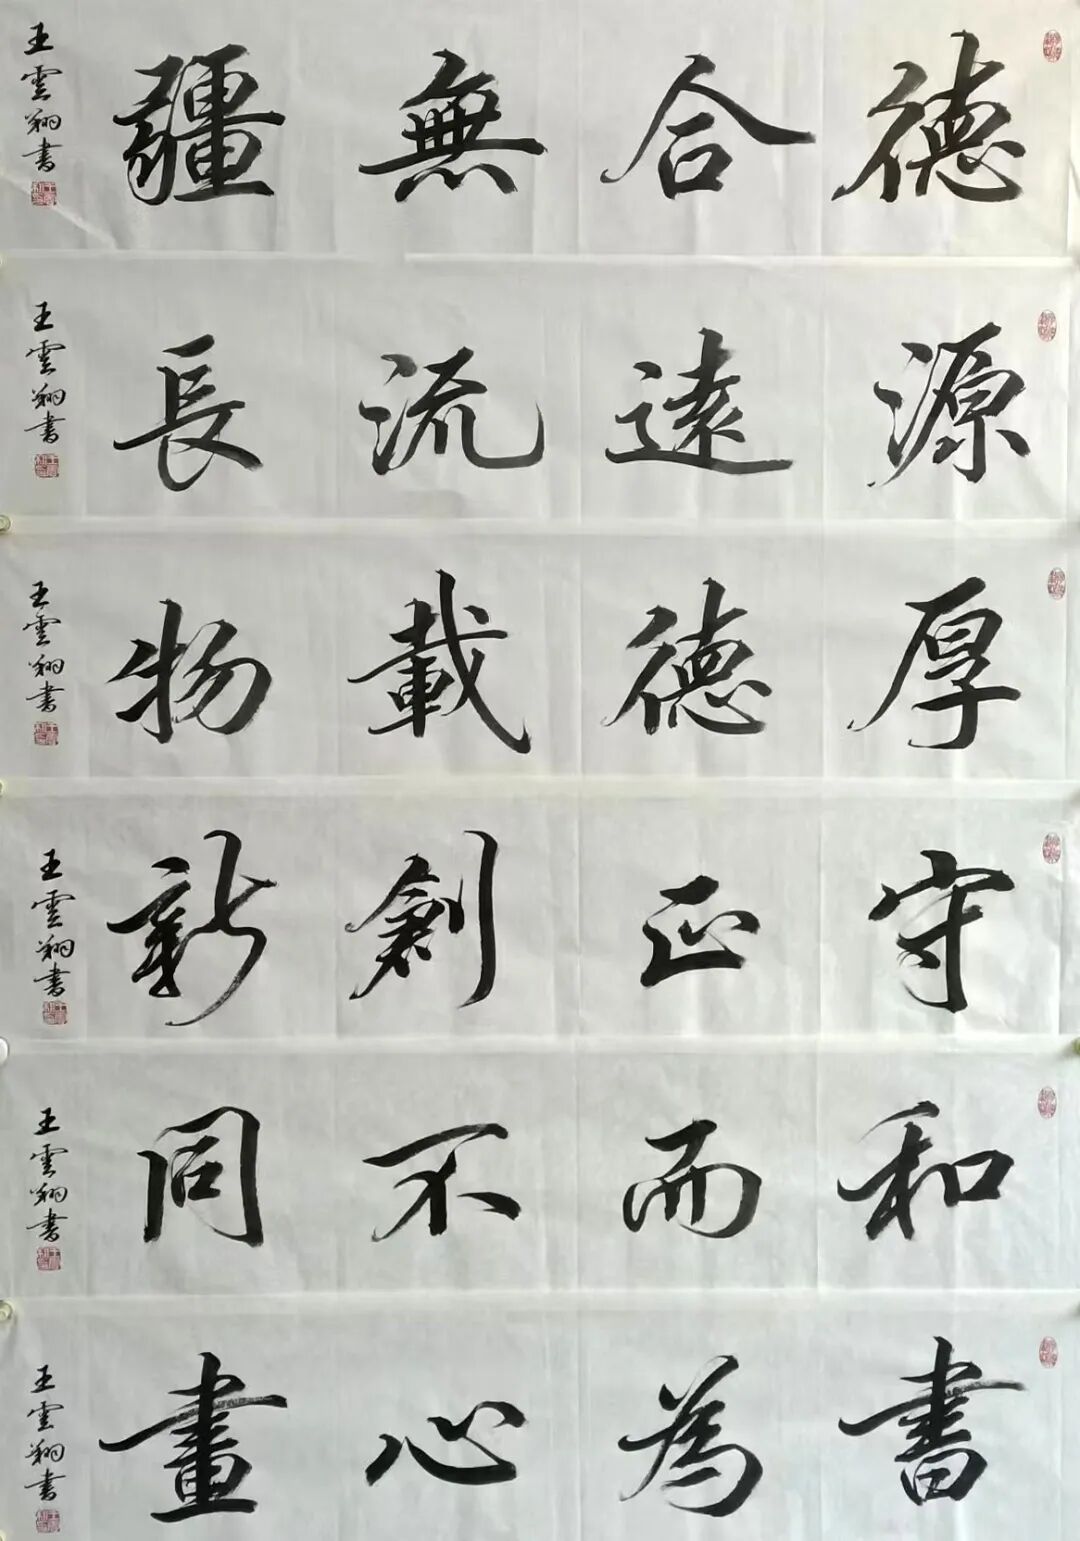 德合無疆
王雲翔書
源遠流長
王雲翔書
厚德載物
王雲翔書
守正創新
王雲翔書
和而不同
王雲翔書
書為心畫
王雲翔書